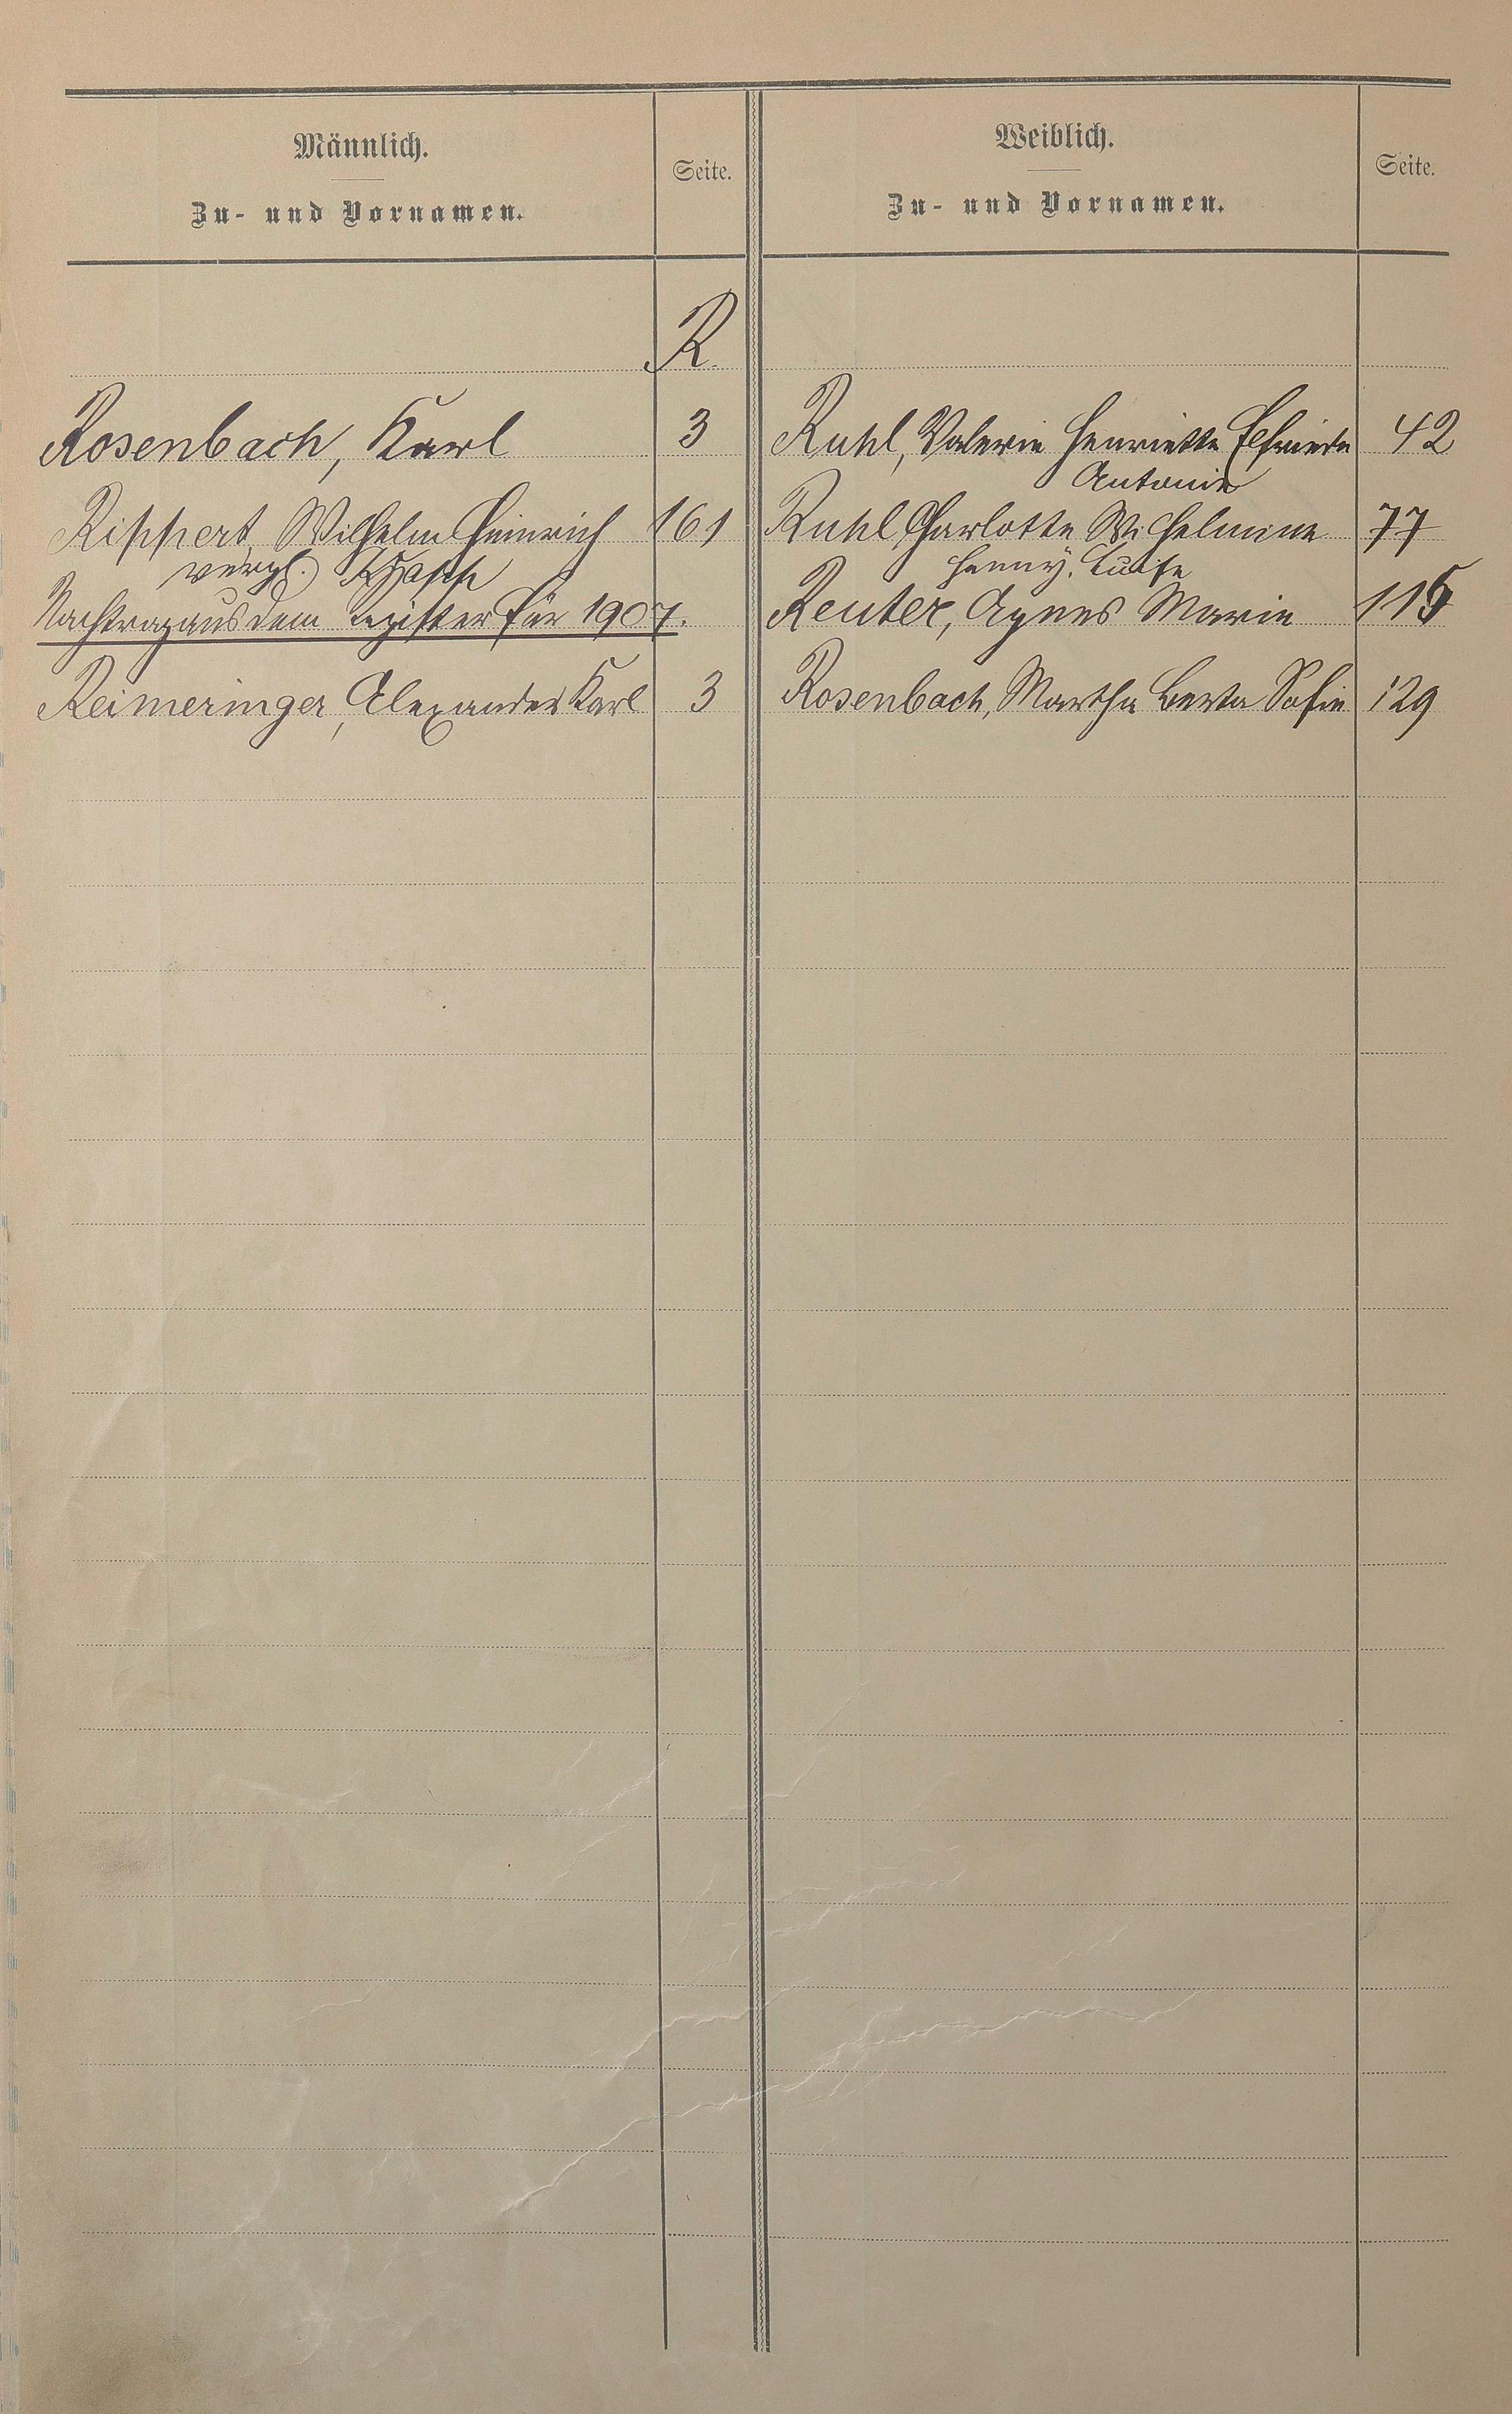 Männlich.
Zu- und Vornamen.
Seite.
Weiblich.
Zu- und Vornamen.
Seite.
R.
Rosenbach, Karl 3
Rippert, Wilhelm Heinrich 161
vergl.
Nachtrag aus dem Register für 1907.
Reimeringer, Alexander Karl 3
Ruhl, Valerie Henriette Elfriede 42
Antonie
Ruhl, Charlotte Wilhelmine 77
Henny, Luise
Reuter, Agnes Marie 115
Rosenbach, Martha Berta Sofie 129